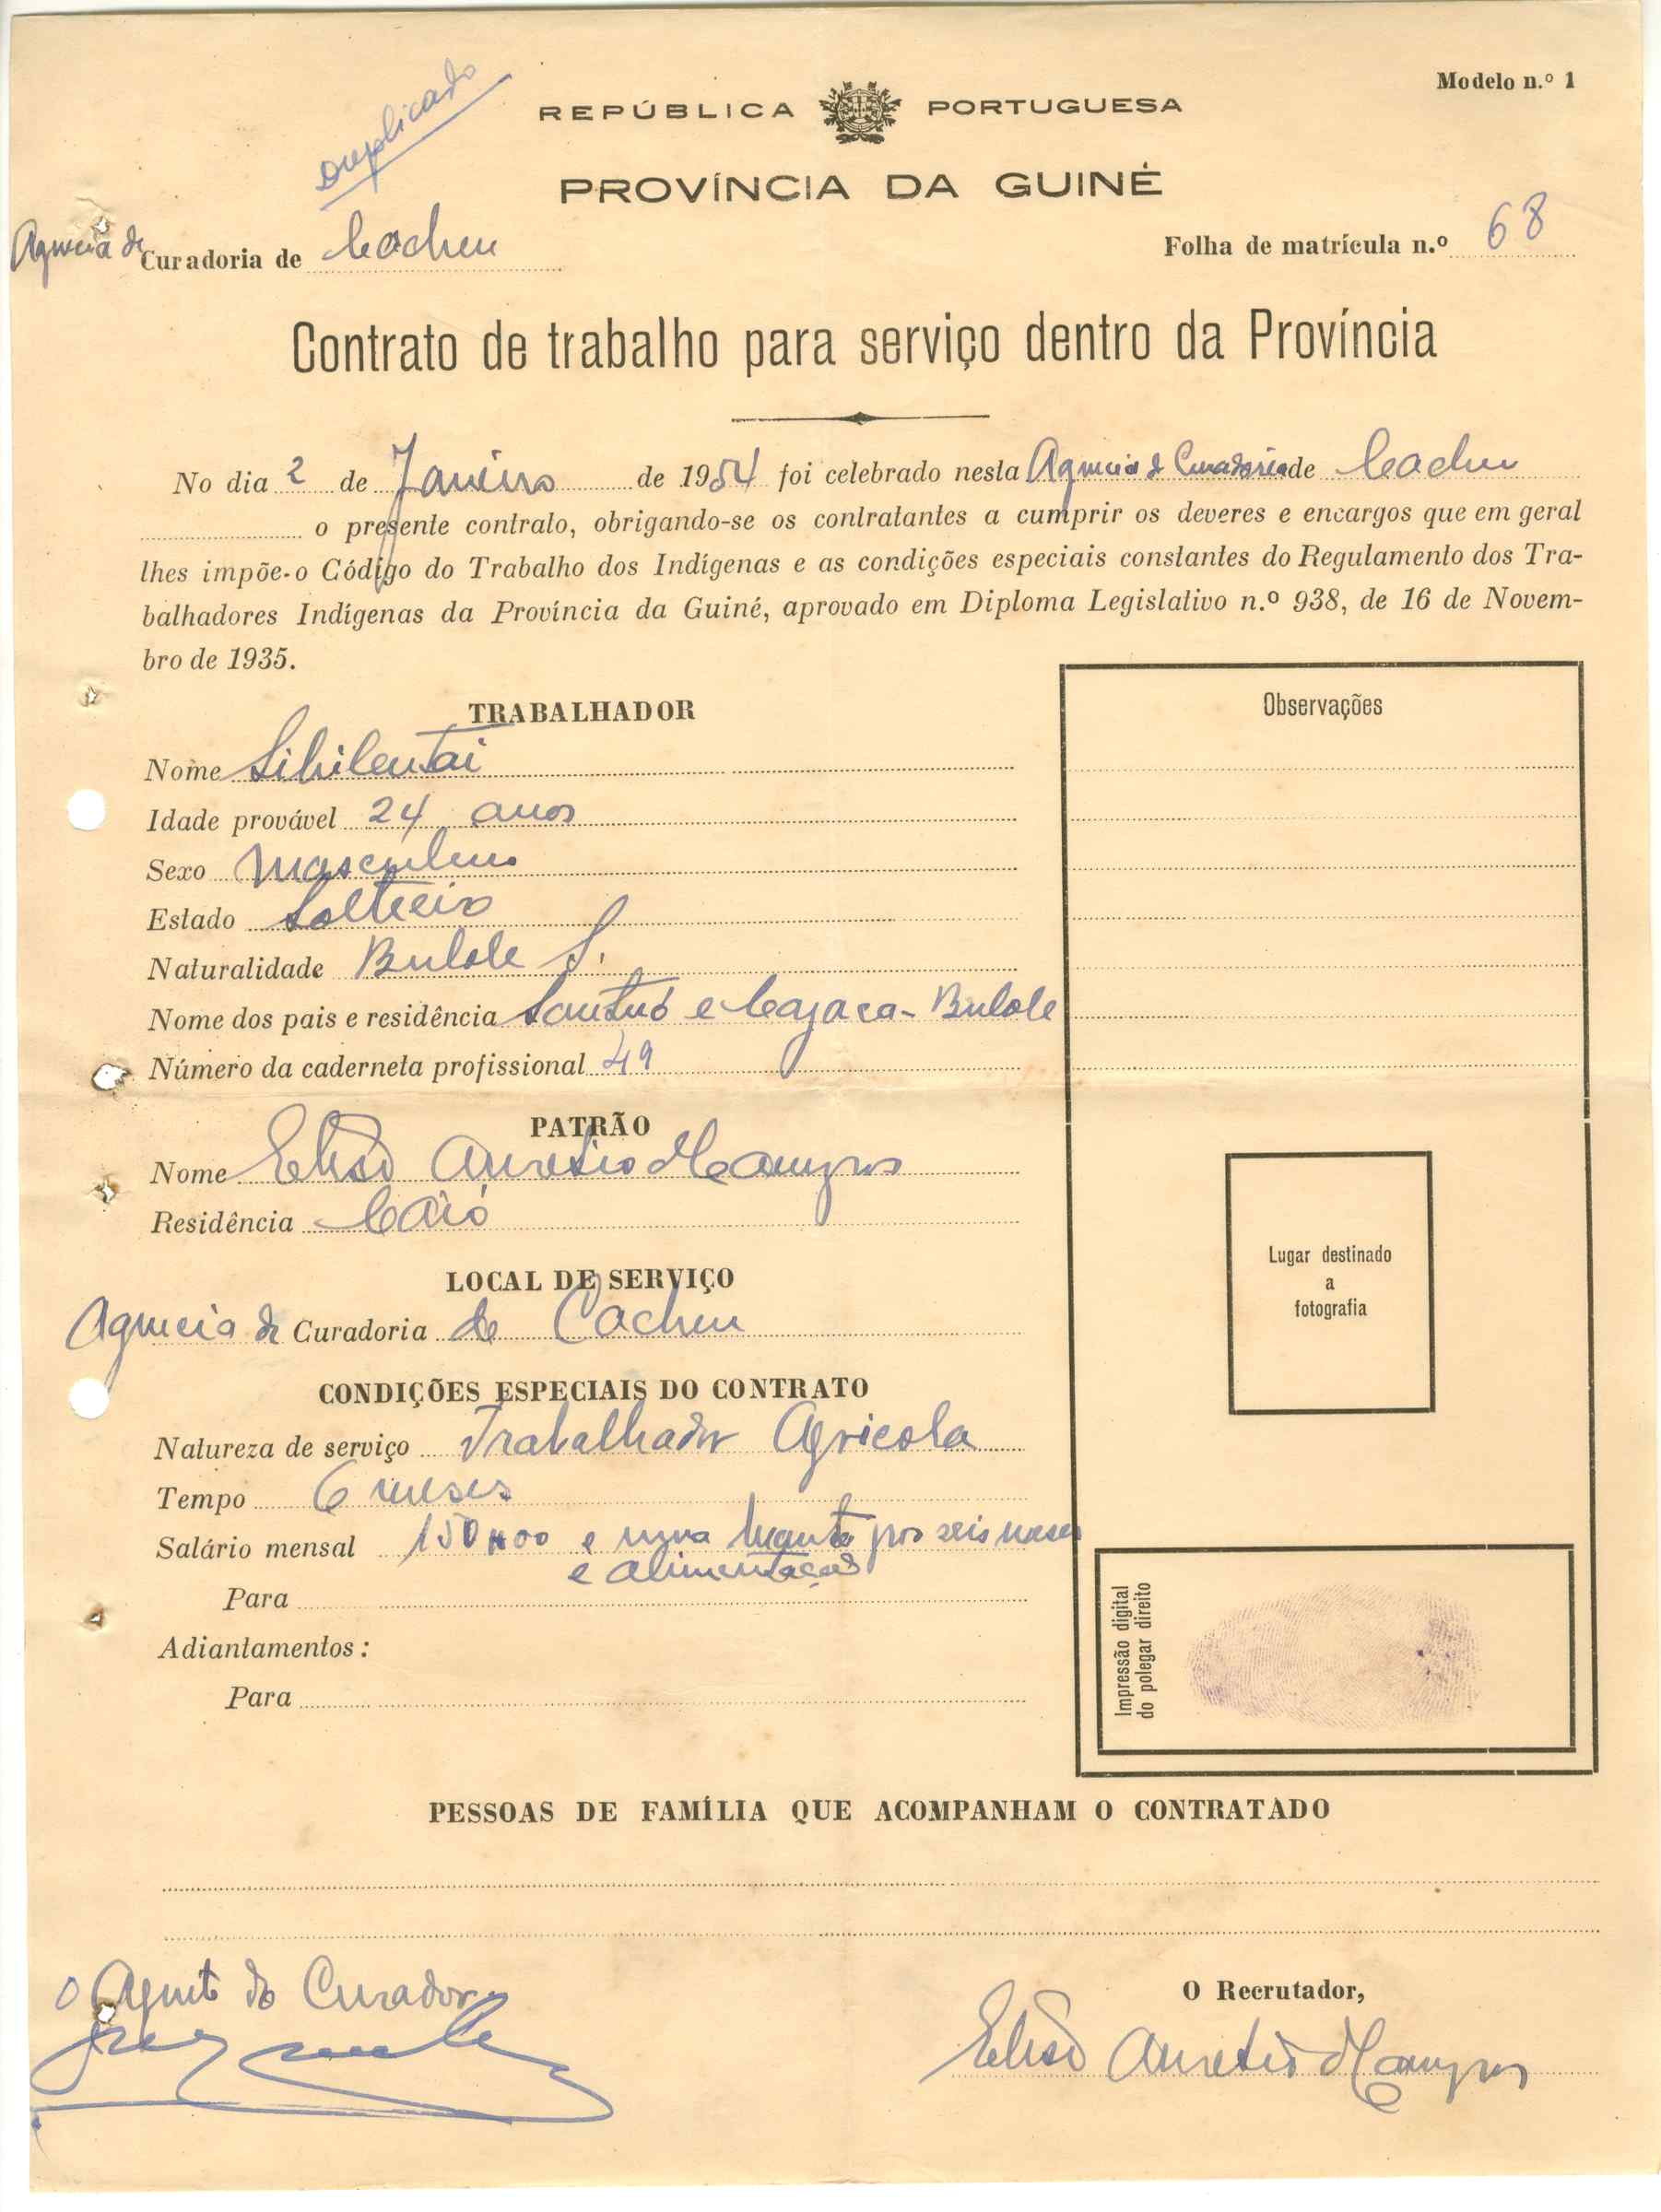 Modelo n.º 1
Duplicado
REPÚBLICA PORTUGUESA
PROVÍNCIA DA GUINÉ
Agencia de Curadoria de Cacheu
Folha de matrícula n.º 68
Contrato de trabalho para serviço dentro da Província
No dia 2 de Janeiro de 1954 foi celebrado nesta Agencia de Curadoria de Cacheu
o presente contrato, obrigando-se os contratantes a cumprir os deveres e encargos que em geral
lhes impõe-o Código do Trabalho dos Indígenas e as condições especiais constantes do Regulamento dos Tra-
balhadores Indígenas da Província da Guiné, aprovado em Diploma Legislativo n.º 938, de 16 de Novem-
bro de 1935.
TRABALHADOR
Nome
Idade provável 24 anos
Sexo Masculino
Estado Solteiro
Naturalidade Bulole S.
Nome dos pais e residência e Cajaca - Bulole
Número da caderneta profissional 49
Observações
PATRÃO
Nome Eliso Aurelio
Residência Caió
LOCAL DE SERVIÇO
Agencia de Curadoria de Cacheu
Lugar destinado
a
fotografia
CONDIÇÕES ESPECIAIS DO CONTRATO
Natureza de serviço Trabalhador Agricola
Tempo 6 meses
Salário mensal 150$00 e uma manta por seis meses
e alimentação
Para
Adiantamentos:
Para
Impressão digital
do polegar direito
PESSOAS DE FAMÍLIA QUE ACOMPANHAM O CONTRATADO
O Agente do Curador
O Recrutador,
Eliso Aurelio